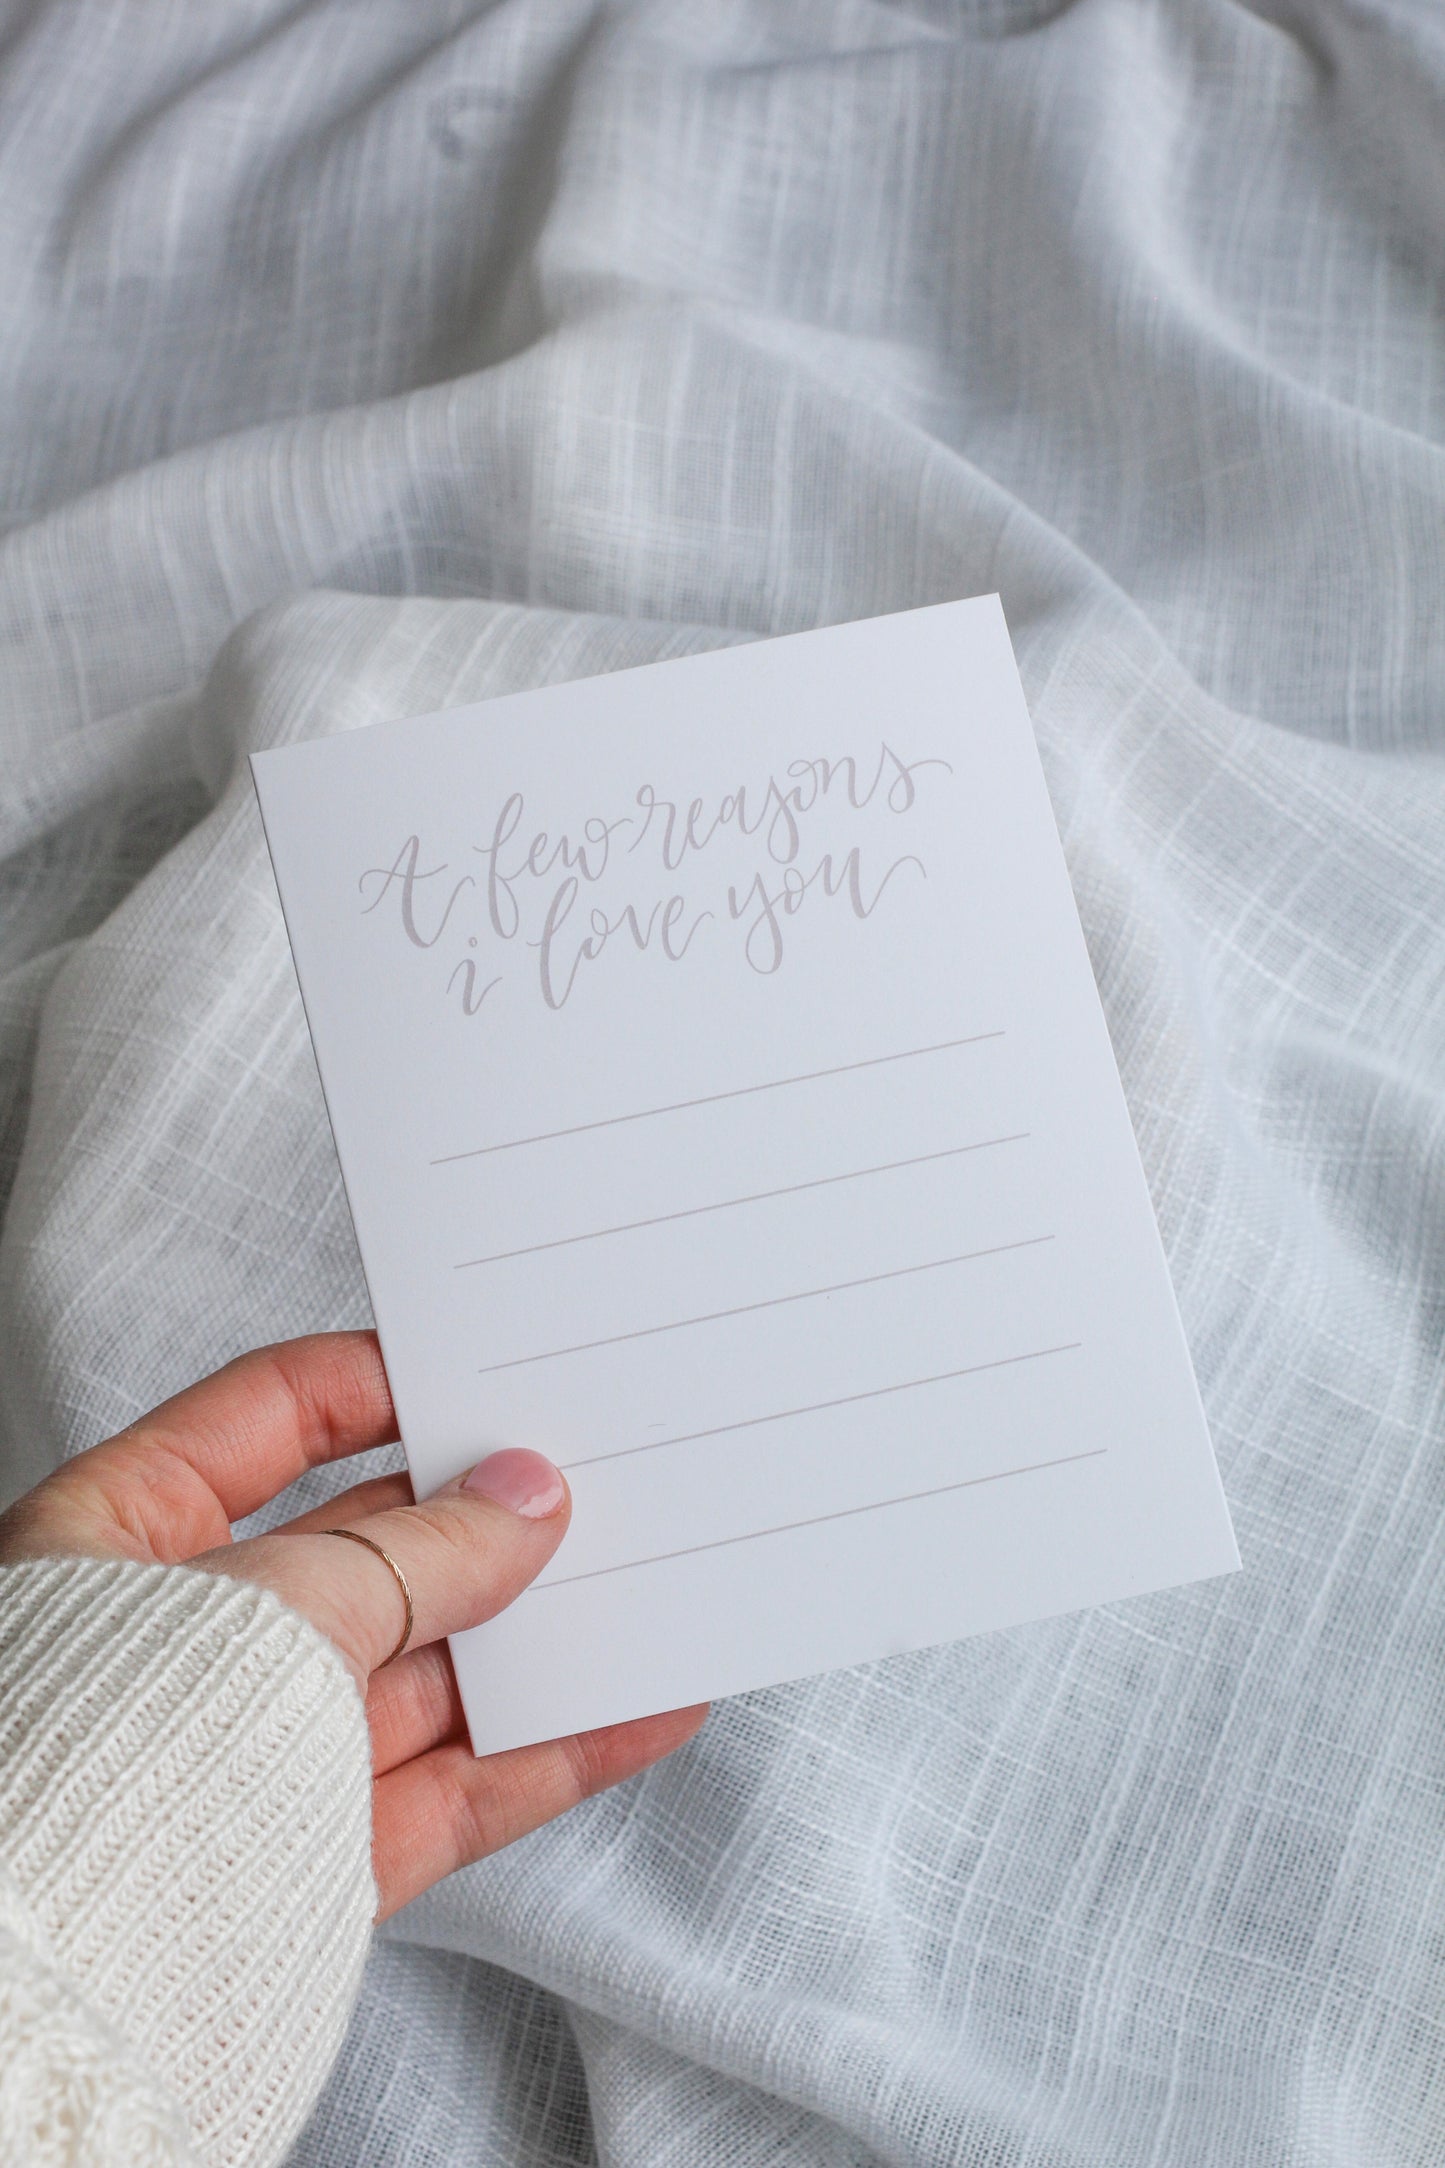 A few reasons
i love you